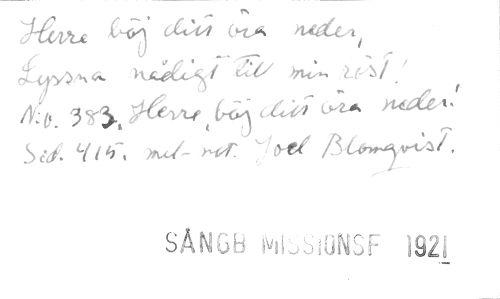 Herre böj ditt öra neder,
Lyssna nådigt till min röst!
N:o. 383. Herre, böj ditt öra neder!
Sid. 415. mel-not. Joel Blomqvist.
SÅNGB MISSIONSF 1921